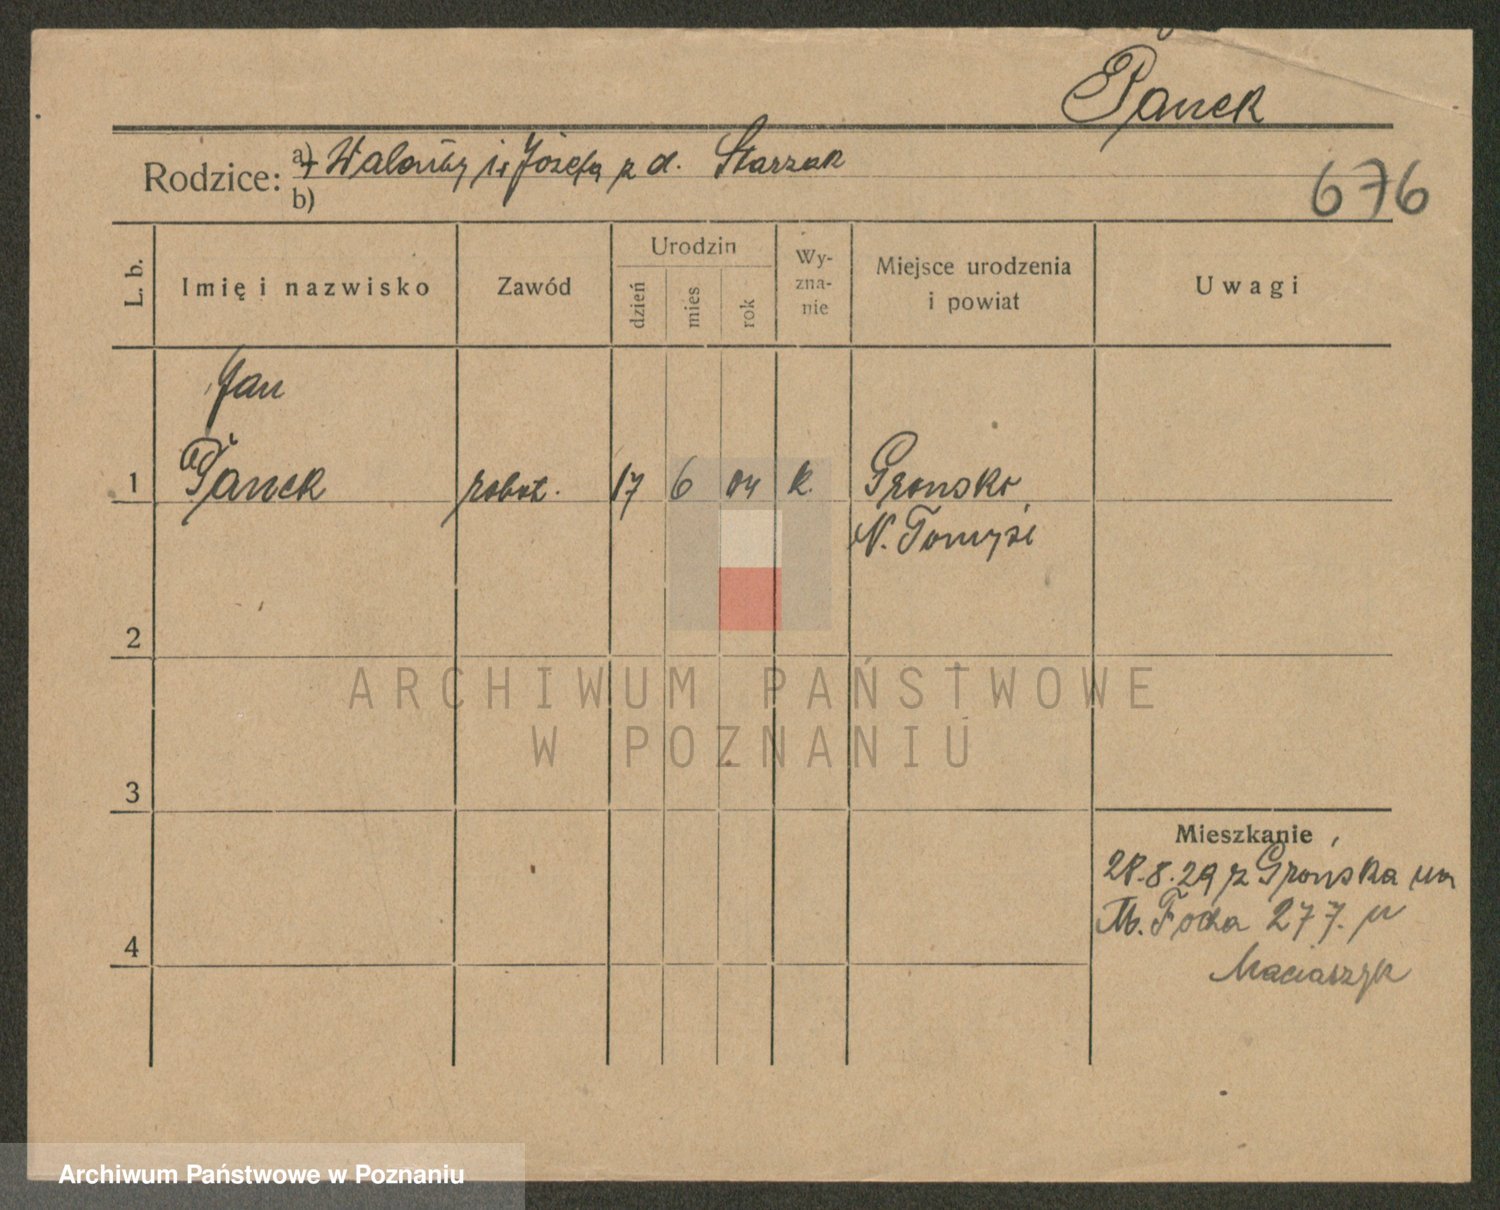 Panek
Rodzice: a) + Walenty i + Józefa z d. Starzak
b)
676
L. b.
Imię i nazwisko
Zawód
Urodzin
dzień
mies
rok
Wy-
zna-
nie
Miejsce urodzenia
i powiat
Uwagi
Jan
1 Panek robot. 17 6 04 k. Gronsko
N. Tomyśl
2
ARCHIWUM PAŃSTWOWE
W POZNANIU
3
Mieszkanie
28.8.29 z Grońska na
M. Focha 277. u
4
Maciaszyk
Archiwum Państwowe w Poznaniu